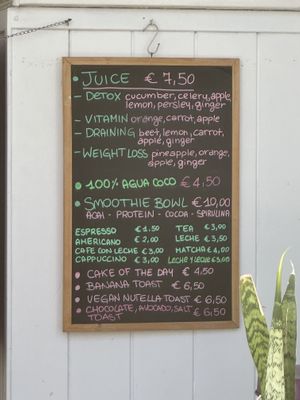 • JUICE € 7,50
- DETOX cucumber, celery, apple,
lemon, persley, ginger
- VITAMIN orange, carrot, apple
- DRAINING beet, lemon, carrot,
apple, ginger
- WEIGHT LOSS pineapple, orange,
apple, ginger
• 100% AGUA COCO € 4,50
• SMOOTHIE BOWL € 10,00
ACAI - PROTEIN - COCOA - SPIRULINA
ESPRESSO € 1.50 TEA € 3,00
AMERICANO € 2,00 LECHE € 3,50
CAFE CON LECHE € 3,00 MATCHA € 4,00
CAPPUCCINO € 3,00 LECHE Y LECHE € 3,00
• CAKE OF THE DAY € 4,50
• BANANA TOAST € 6,50
• VEGAN NUTELLA TOAST € 6,50
• CHOCOLATE, AVOCADO, SALT
TOAST € 6,50